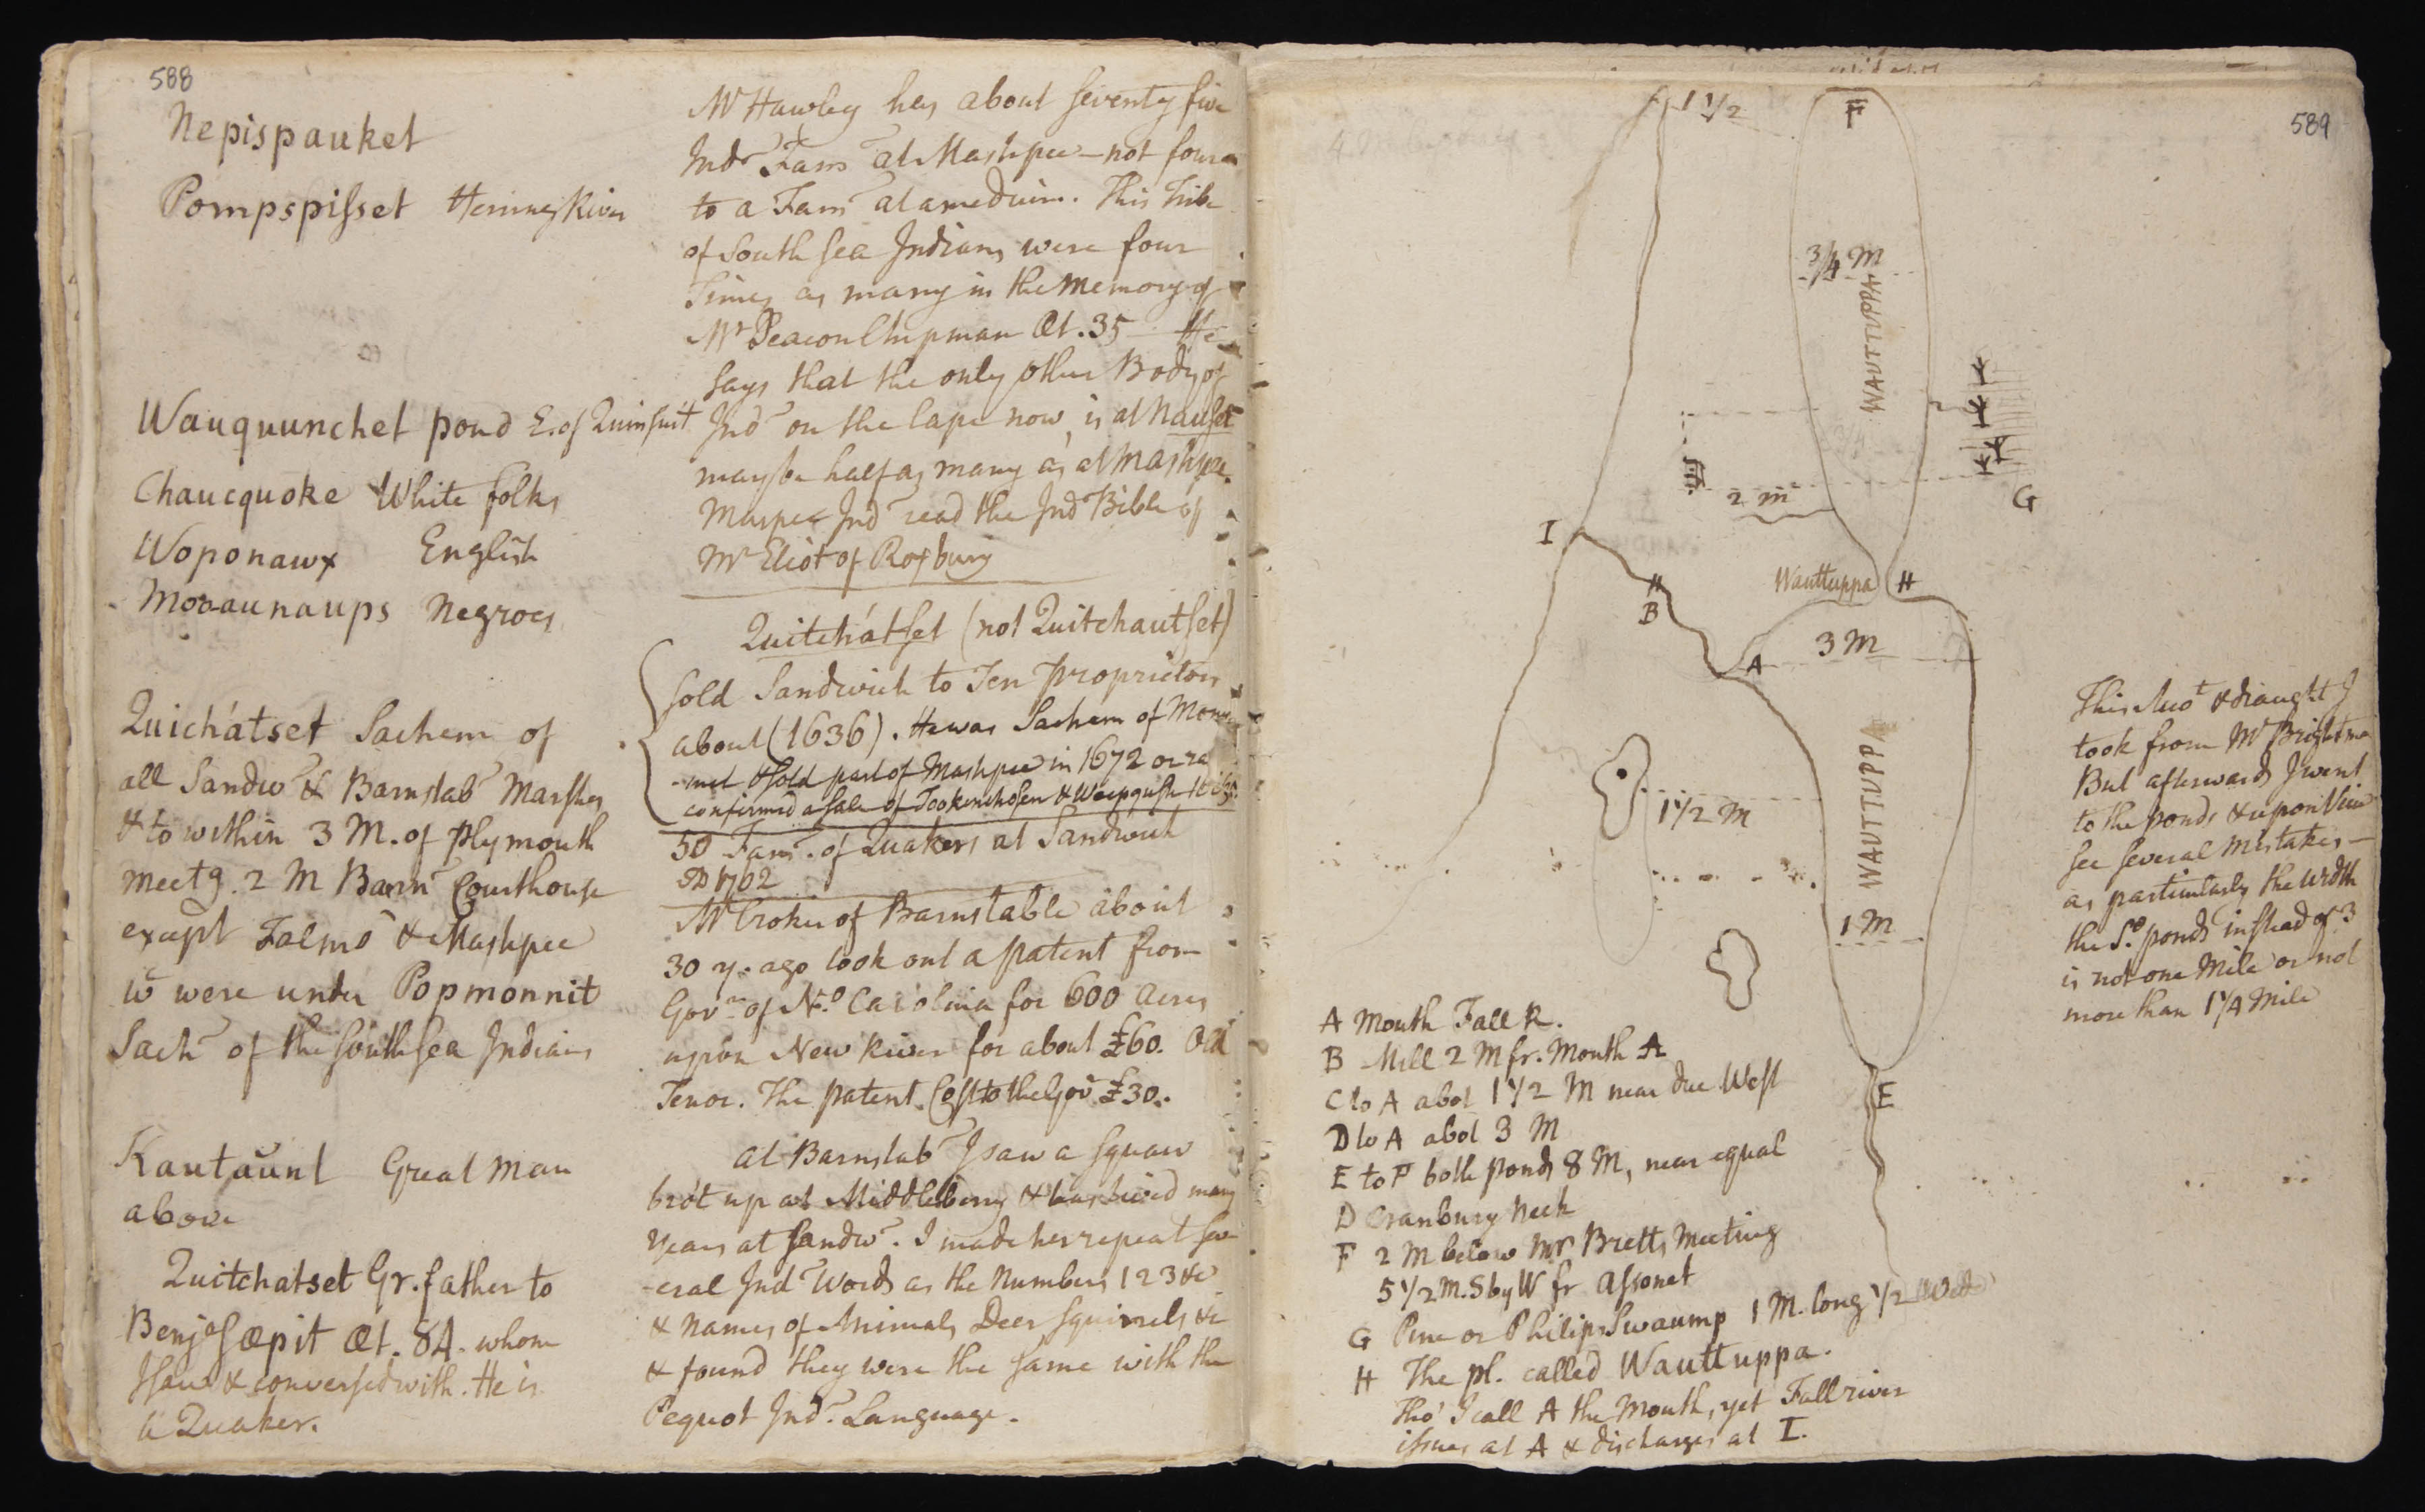 588
Nepispauket
Pompspisset Herring River
Wauquunchet pond E. of Quinsuit
Chaucquoke White folks
Woponawx English
Mooaunaups Negroes
Quichátset Sachem of
all Sandw & Barnstab Marshes
& to within 3 M. of Plymouth
Meetg. 2 M Barn Courthouse
except Falmo & Mashpee
w were under Popmonnit
Sach of the South Sea Indians
Kautaunt Great Man
above
Quitchatset Gr. father to
Benja Sæpit Æt. 84. whom
I saw & conversed with. He is
a Quaker.
Mr Hawley has about seventy five
Indn Fams at Mashpee — not four
to a Fam at a medium. This Tribe
of South Sea Indians were four
Times as many in the Memory of
Mr Deacon Chipman Æt. 35 He
says that the only other Body of
Ind on the Cape now, is at Nauset
maybe half as many as at Mashpee.
Maspee Ind read the Ind Bible of
Mr Eliot of Roxbury
Quitchátset (not Quitchautset)
sold Sandwich to Ten Proprietors
about (1636). He was Sachem of
-met & sold part of Mashpee in 1672 or
confirmed a sale of Tookenchosen & Weepquish
50 Fams. of Quakers at Sandwich
AD 1762
Mr Croker of Barnstable about
30 y. ago took out a patent from
Govr of No. Carolina for 600 Acres
upon New River for about £60. Old
Tenor. The patent Cost to the Gov £30.
at Barnstab I saw a Squaw
bro't up at Middlebery & has lived many
Years at Sandw. I made her repeat sev
-eral Ind Words as the Numbers 1 2 3 &c
& names of Animals Deer Squirrels &c
& found they were the same with the
Pequot Ind. Language.
589
1 1/2
F
3/4 M
WAUTTUPPA
3/4
2 m
G
I
H
B
Wauttuppa
H
A
3 M
1 1/2 M
WAUTTUPPA
1 M
E
This Acot & draught I
took from Mr Brightman
But afterwards I went
to the ponds & upon View
see several Mistakes —
as particularly the Width
the So. ponds instead of 3
is not one Mile or not
more than 1 1/4 Mile
A Mouth Fall R.
B Mill 2 M fr. Mouth A
C to A abot 1 1/2 M near due West
D to A abot 3 M
E to F both ponds 8 M, near equal
D Cranbury Neck
F 2 M below Mr Bretts Meeting
5 1/2 M. S by W fr Assonet
G Pine or Philips Swaump 1 M. long 1/2 Wide
H The pl. called Wauttuppa.
Tho' I call A the Mouth, yet Fall river
issues at A & discharges at I.